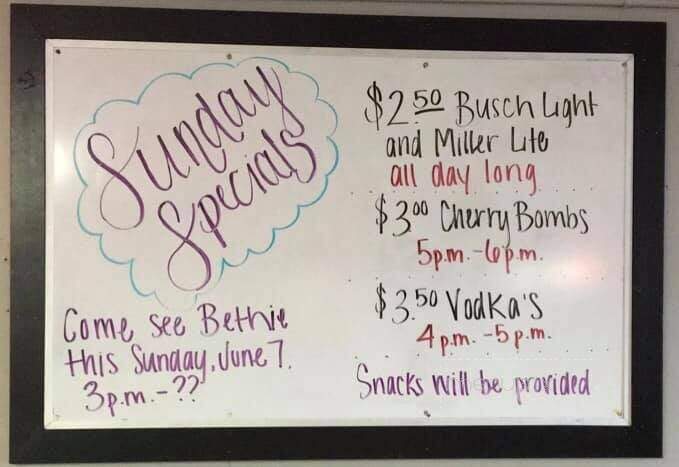 Sunday
Specials
Come see Bethie
this Sunday, June 7.
3p.m.-??
$2.50 Busch Light
and Miller Lite
all day long
$3.00 Cherry Bombs
5p.m.-6p.m.
$3.50 Vodka's
4p.m.-5p.m.
Snacks will be provided